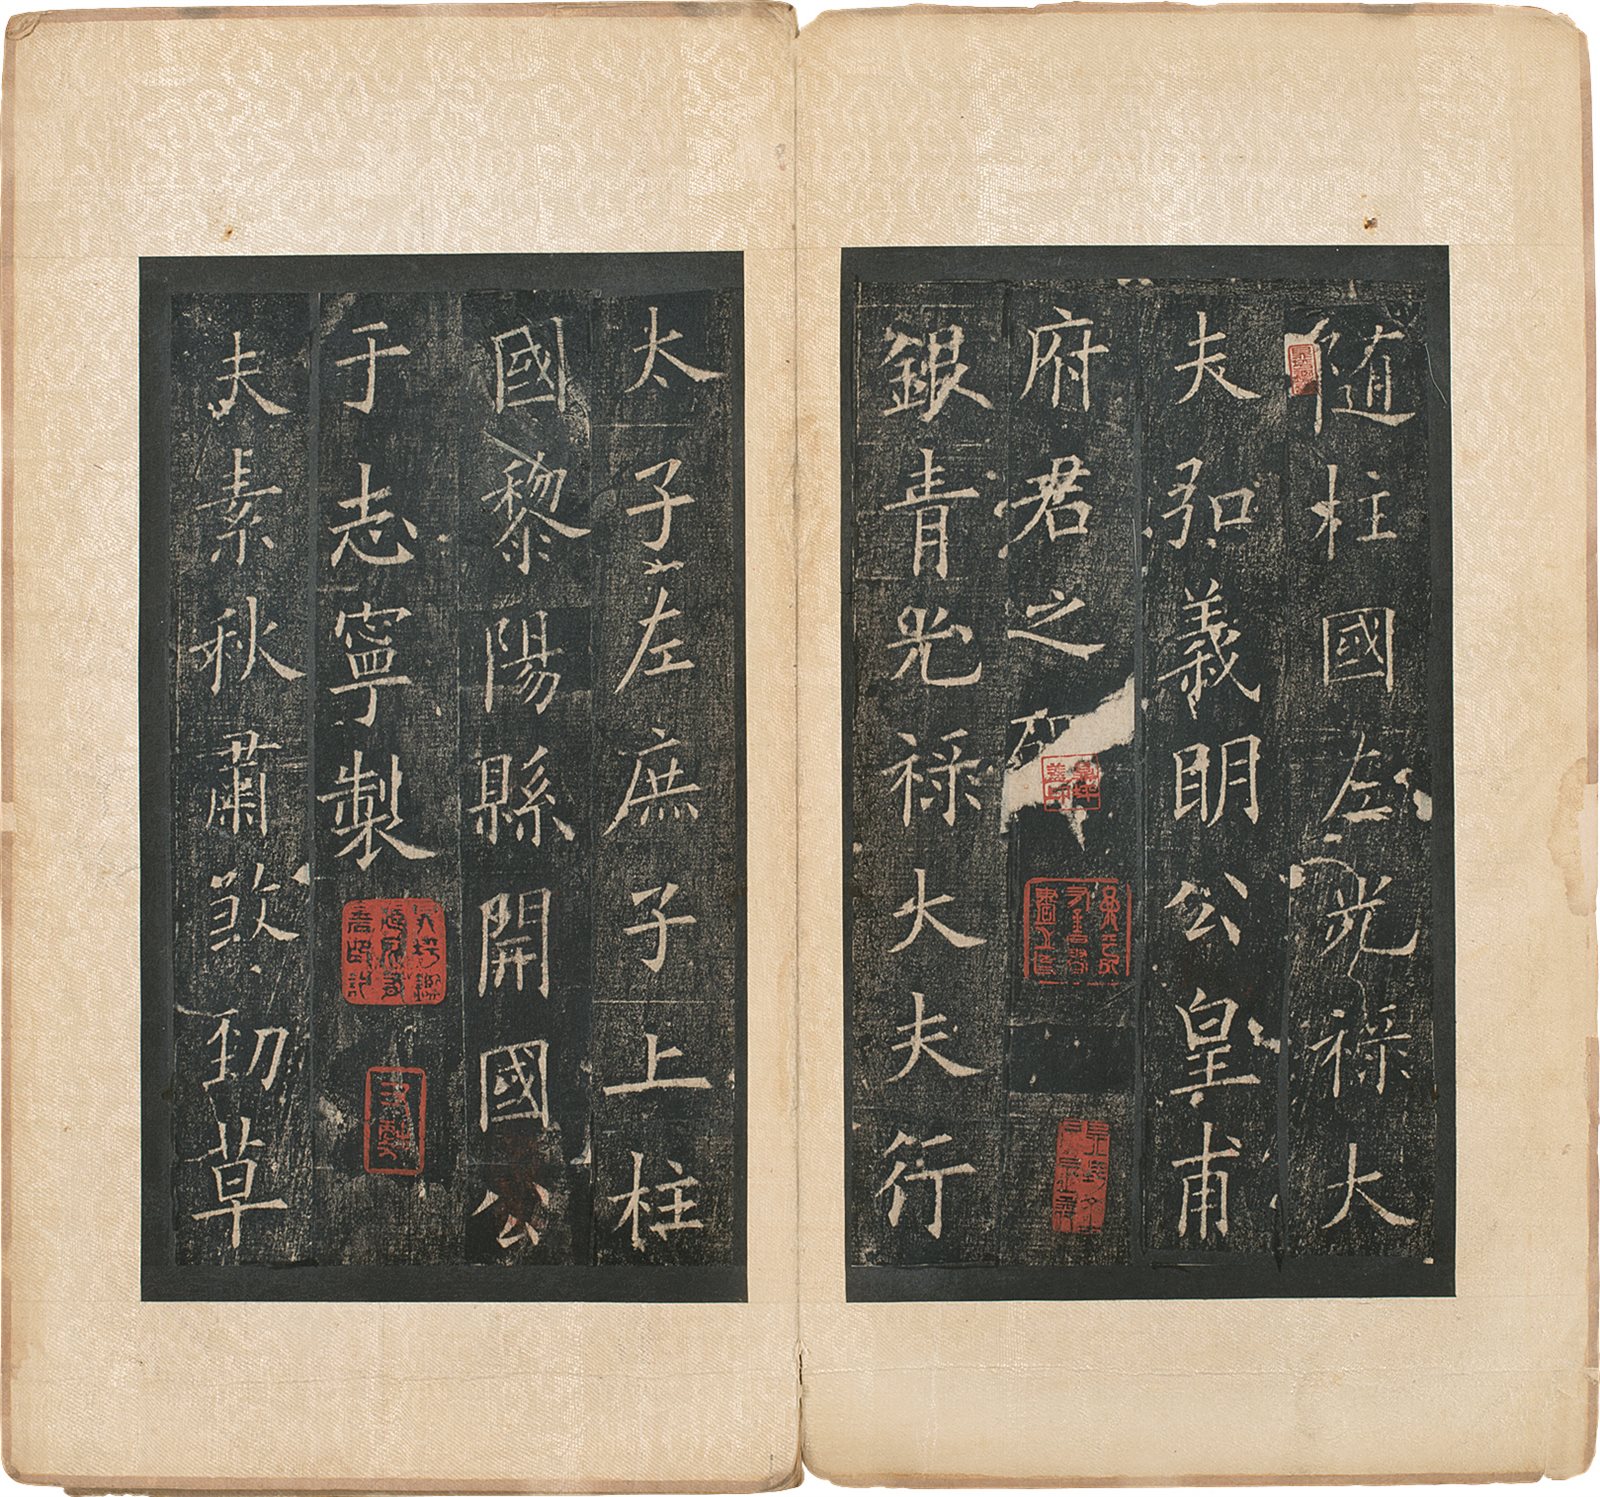 随柱國左光禄大
夫弘義明公皇甫
府君之碑
銀青光禄大夫行
太子左庶子上柱
國黎陽縣開國公
于志寧製
夫素秋肅煞勁草